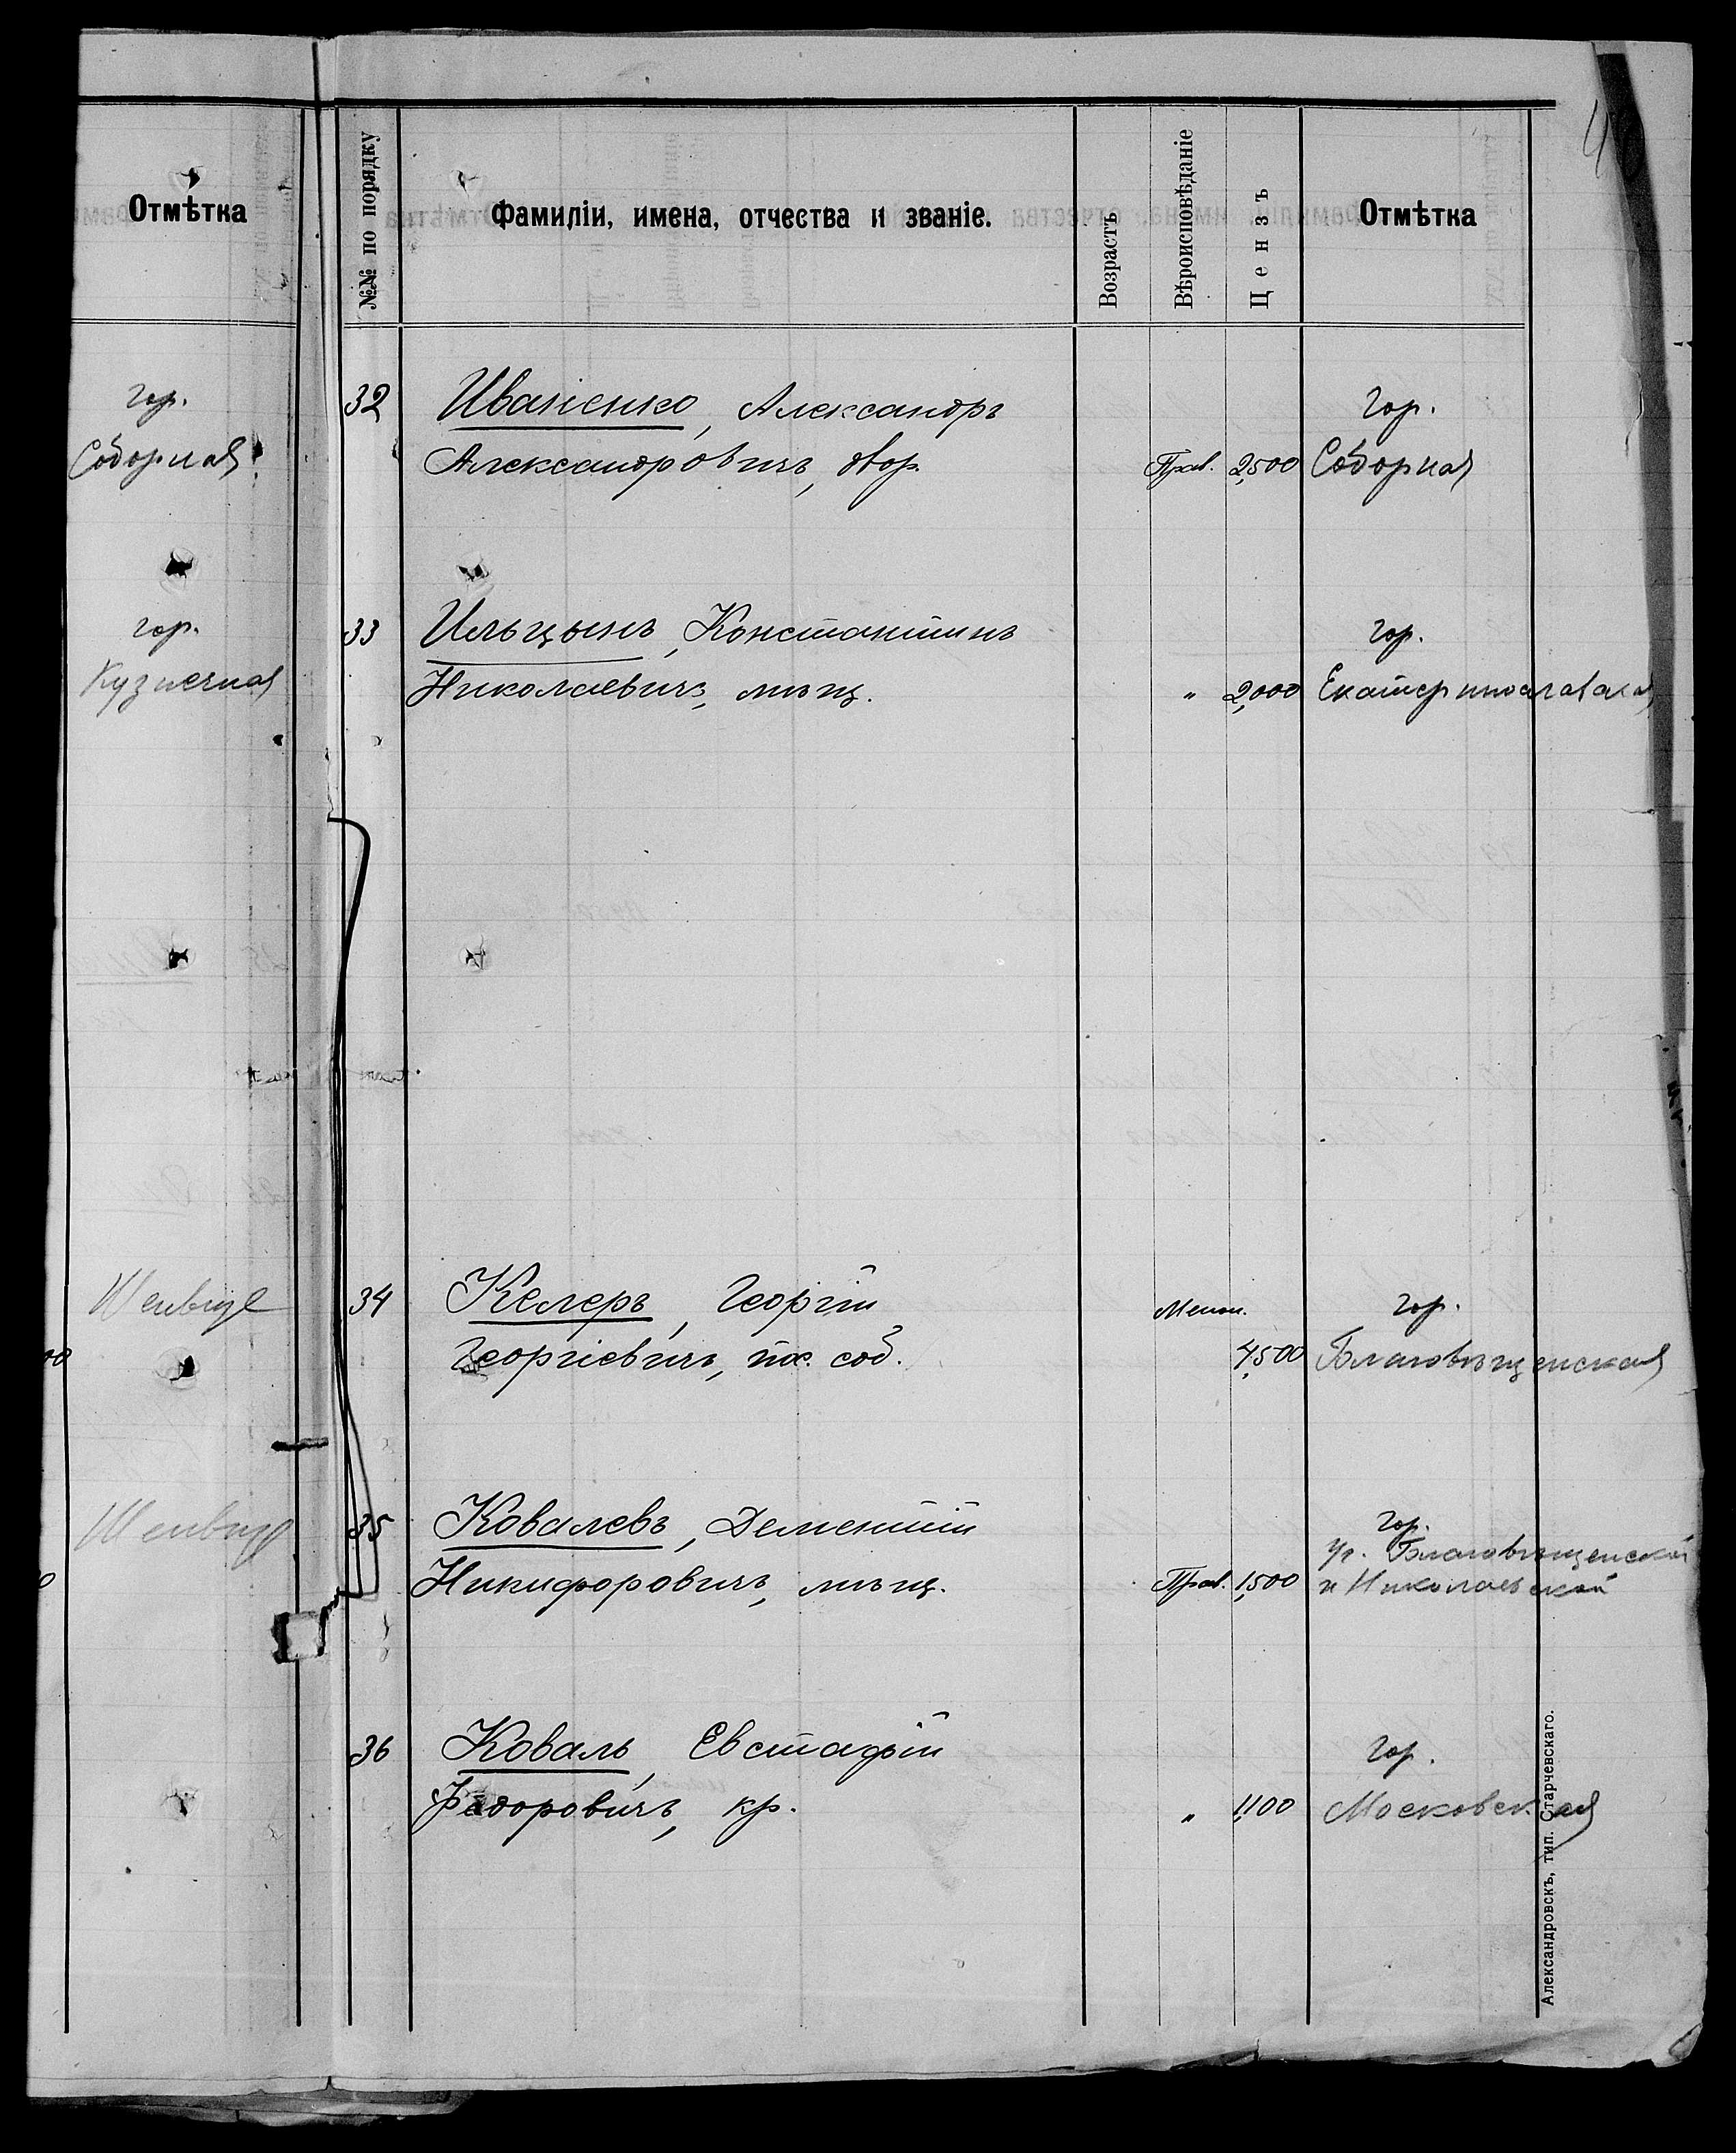 Отмѣтка
гор.
Соборная
гор.
Кузнечная
Шенвизе
Шенвизе
№№ по порядку
Фамиліи, имена, отчества и званіе.
Возрастъ
Вѣроисповѣданіе
Цензъ
Отмѣтка
32 Иваненко, Александръ гор.
Александровичъ, двор. Прав. 2,500 Соборная
33 Ильцынъ, Константинъ гор.
Николаевичъ, мѣщ. " 2,000 Екатеринославская
34 Келеръ, Георгій Менон. гор.
Георгіевичъ, пос. соб. 4,500 Благовѣщенская
35 Ковалевъ, Дементій гор.
уг. Благовѣщенской
Никифоровичъ, мѣщ. Прав. 1,500 и Николаевской
36 Коваль, Евстафій гор.
Федоровичъ, кр. " 1,100 Московская
Александровскъ, тип. Старчевскаго.